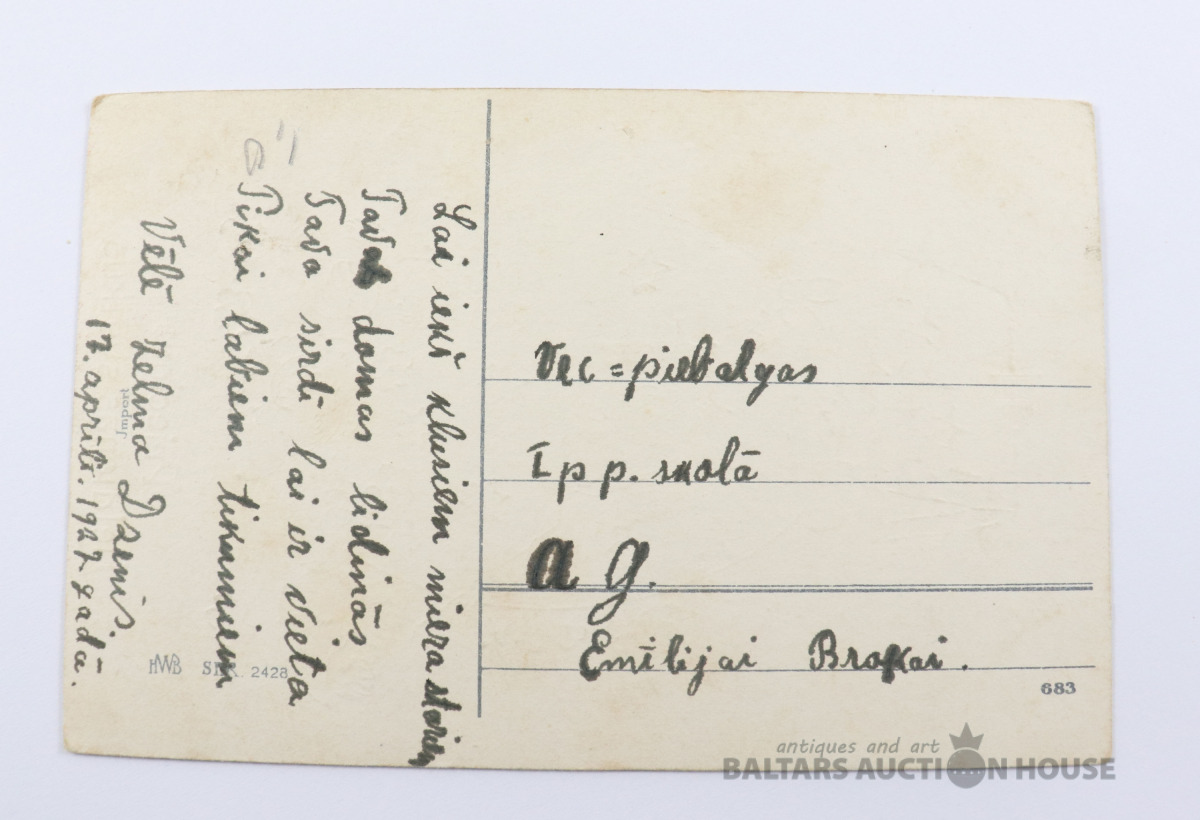 Lai iekš klusiem miera stariem
Tavas domas lidinās
Tavā sirdī lai ir vieta
Tikai labiem tikumiem
Vēlē Zelma Dzenis.
17. aprīlī. 1927 gadā.
Import
HWB SER. 2428
Vec=piebalgas
I p p. skolā
A g.
Emīlijai Brakai.
683
antiques and art
BALTARS AUCTION HOUSE